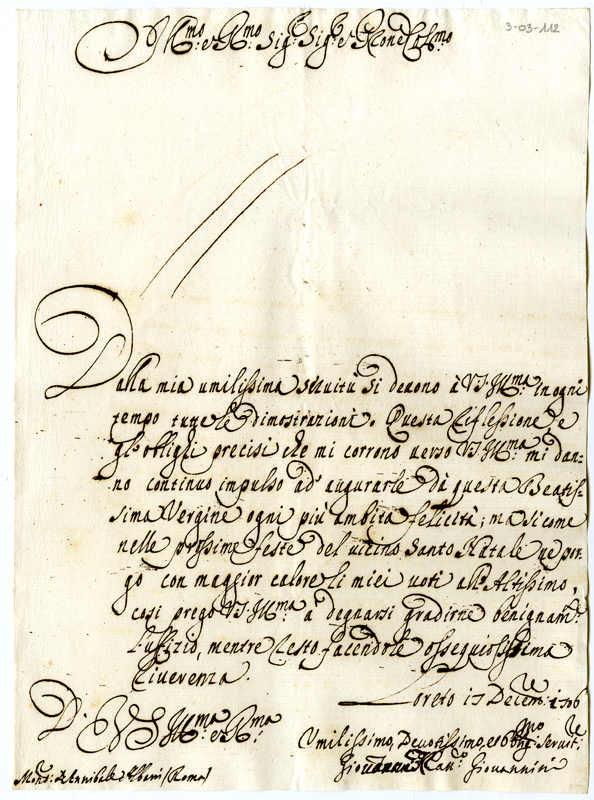 3-03-112
Ill.mo e R.mo Sig.r Sig.r e Pron Col.mo
Dalla mia umilissima seruitù si deuono à VS. Ill.ma in ogni
tempo tutte le dimostrazioni. Questa riflessione, e
gl'obblighi precisi che mi corrono uerso VS. Ill.ma mi dan=
no continuo impulso ad augurarle dà questa Beatis=
sima Vergine ogni più ambita felicità; ma si come
nelle prossime feste del uicino Santo Natale ne por=
go con maggior calore li miei uoti all'Altissimo,
così prego VS. Ill.ma à degnarsi gradirne benignam.te
l'uffizio, mentre resto facendole ossequiosissima
riuerenza.
Loreto 17 Decem.re 1706
D. VS Ill.ma e R.ma
Umilissimo, Deuotissimo, et Obblig.mo Seruit.re
Giouanni Can.co Giouannini
Mons.r Annibale Albani (Roma)